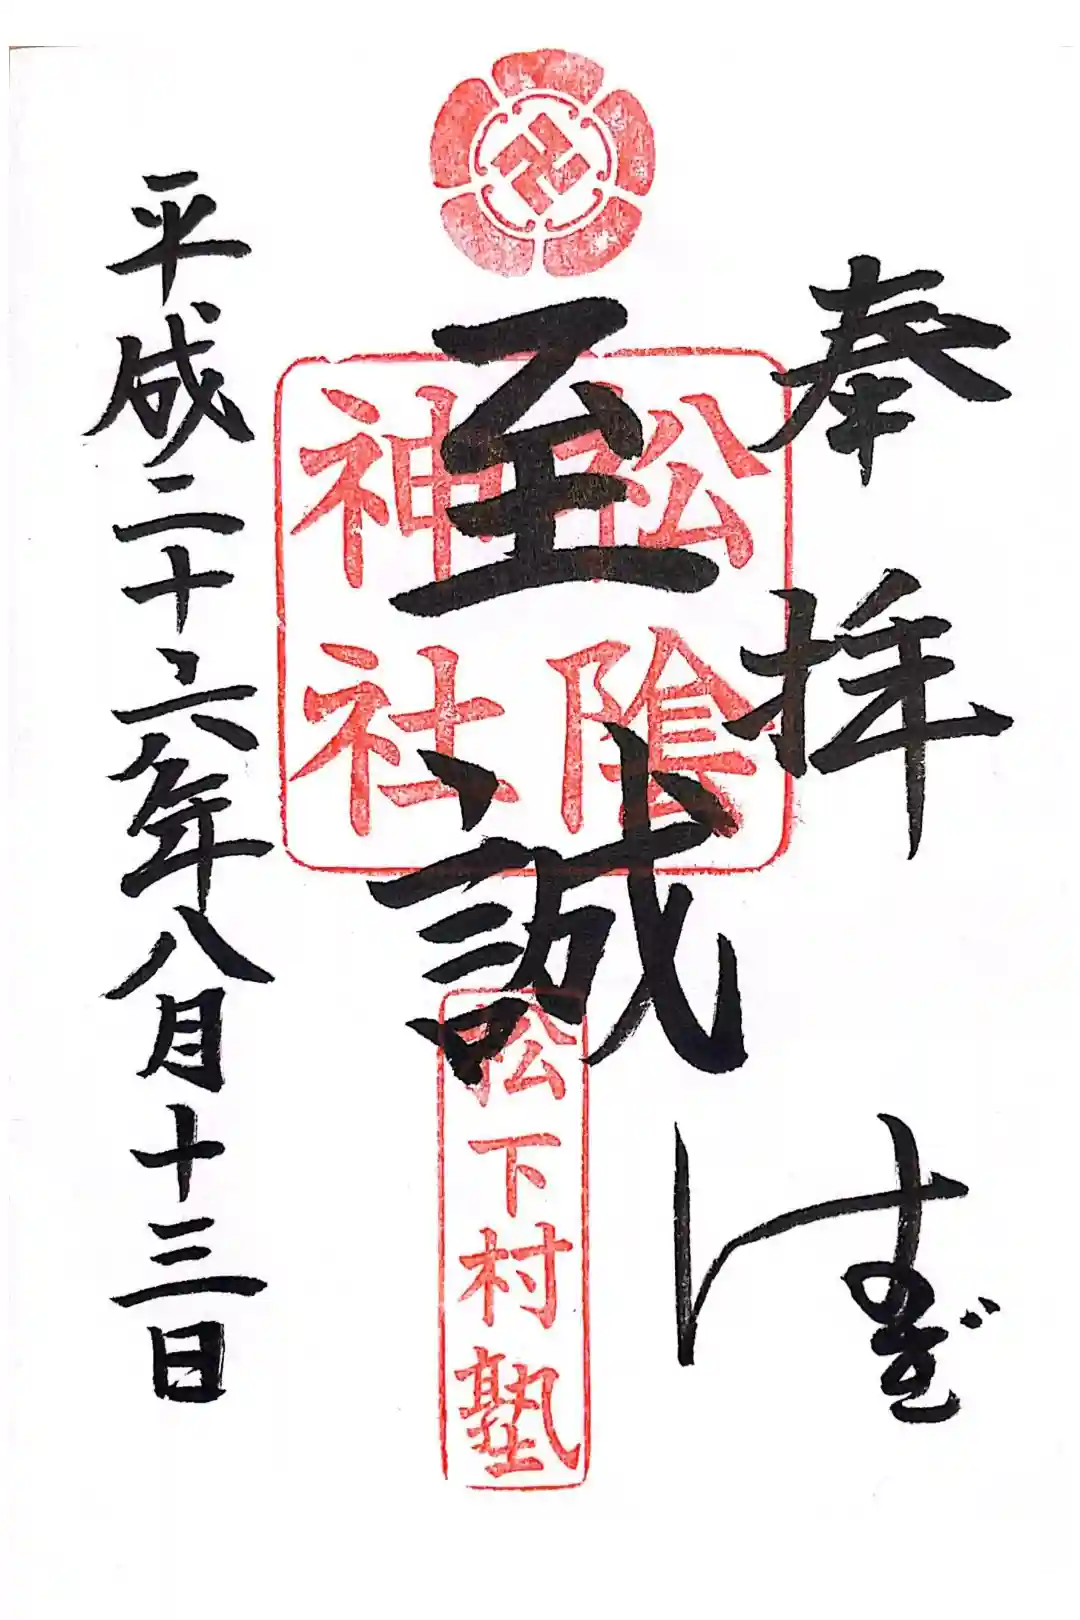 奉拝
至誠
松陰
神社
松下村塾
平成二十六年八月十三日